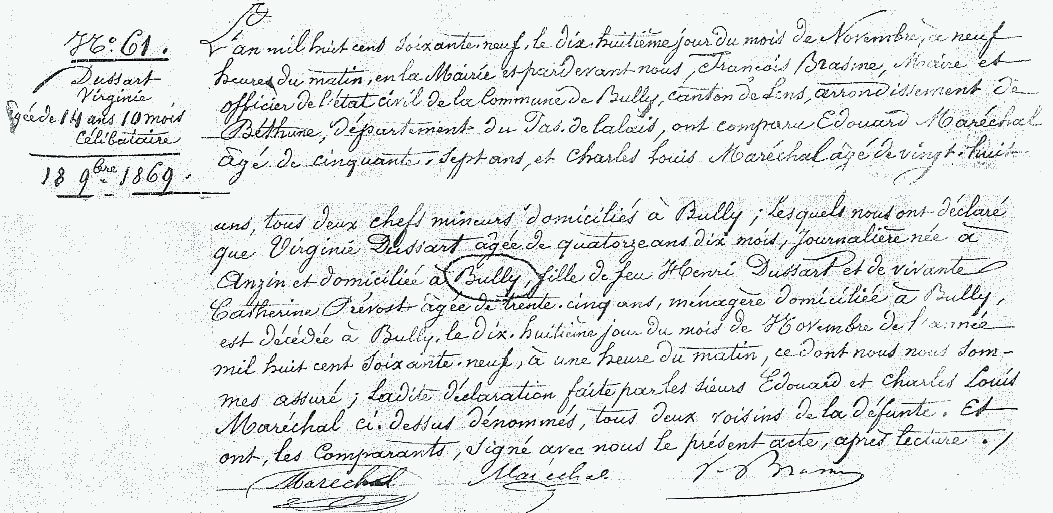 N° 61.
Dussart
Virginie
âgée de 14 ans 10 mois
Célibataire
18 9bre 1869.
L'an mil huit cent soixante-neuf, le dix-huitième jour du mois de Novembre, à neuf
heures du matin, en la Mairie et pardevant nous, François Brasme, Maire et
officier de l'état civil de la Commune de Bully, canton de Lens, arrondissement de
Béthune, département du Pas-de-Calais, ont comparu Edouard Maréchal
âgé de cinquante-sept ans, et Charles Louis Maréchal âgé de vingt-huit
ans, tous deux chefs mineurs domiciliés à Bully ; lesquels nous ont déclaré
que Virginie Dussart âgée de quatorze ans dix mois, Journalière née à
Anzin et domiciliée à Bully, fille de feu Henri Dussart et de vivante
Catherine Prévost âgée de trente-cinq ans, ménagère domiciliée à Bully,
est décédée à Bully, le dix-huitième jour du mois de Novembre de l'année
mil huit cent soixante-neuf, à une heure du matin, ce dont nous nous som-
mes assuré ; Ladite déclaration faite par les sieurs Edouard et Charles Louis
Maréchal ci-dessus dénommés, tous deux voisins de la défunte. Et
ont, les Comparants, signé avec nous le présent acte, après lecture.
Maréchal Maréchal F. Brasme